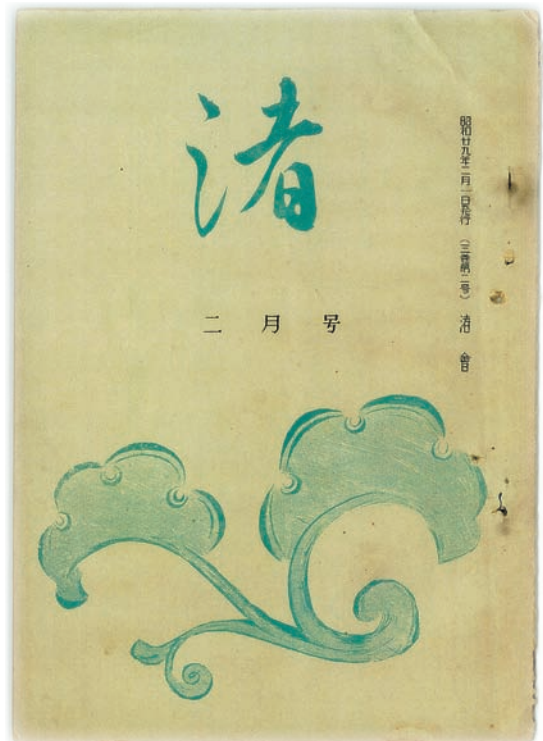 渚
二月号
昭和廿九年二月一日発行 (三巻第二号) 渚會